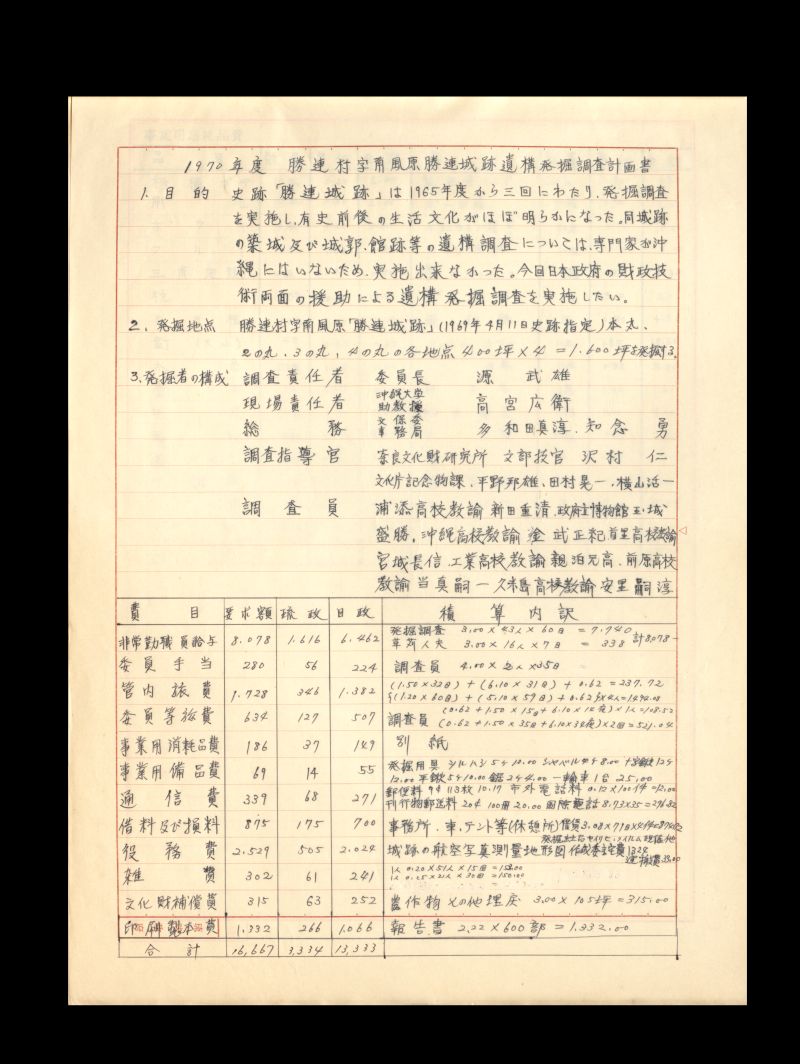 1970年度 勝連村字南風原勝連城跡遺構発掘調査計画書
1. 目的 史跡「勝連城跡」は1965年度から三回にわたり、発掘調査
を実施し、有史前後の生活文化がほぼ明らかになった。同城跡
の築城及び城郭、館跡等の遺構調査については、専門家が沖
縄にはいないため、実施出来なかった。今回日本政府の財政技
術両面の援助による遺構発掘調査を実施したい。
2. 発掘地点 勝連村字南風原「勝連城跡」(1969年4月11日史跡指定)本丸、
2の丸、3の丸、4の丸の各地点 400坪×4 = 1.600坪を発掘する。
3. 発掘者の構成 調査責任者 委員長 源 武雄
現場責任者 沖縄大学助教授 高宮広衛
総務 文保委事務局 多和田真淳、知念 勇
調査指導官 奈良文化財研究所 文部技官 沢村 仁
文化庁記念物課、平野邦雄、田村晃一、横山浩一
調査員 浦添高校教諭 新田重清、政府立博物館 玉城
盛勝、沖縄高校教諭 金武正紀 首里高校教諭
宮城長信、工業高校教諭 親泊元高、前原高校
教諭 当真嗣一 久米島高校教諭 安里嗣淳
費目 要求額 琉政 日政 積算内訳
非常勤職員給与 8.078 1.616 6.462 発掘調査 3.00×43人×60日 = 7.740
草苅人夫 3.00×16人×7日 = 338 計8,078-
委員手当 280 56 224 調査員 4.00×2人×35日
管内旅費 1.728 346 1.382 (1.50×32日) + (6.10×31日) + 0.62 = 237.72
{(1.20×60日) + (5.10×59日) + 0.62}×4人=1494.08
委員等旅費 634 127 507 (0.62 + 1.50×15日 + 6.10×14夜)×1人=108.52
調査員 (0.62+1.50×35日+6.10×34夜)×2日=521.04
事業用消耗品費 186 37 149 別紙
事業用備品費 69 14 55 発掘用具 ツルハシ5ヶ10.00 シャベル4ヶ8.00 十字鍬12ヶ
12.00 平鍬5ヶ10.00 鋸2ヶ4.00 一輪車1台 25.00
通信費 339 68 271 郵便料 9¢ 113枚 10.17 市外電話料 0.12×100件=12.00
刊行物郵送料 20¢ 100冊 20.00 国際電話 8.73×35=296.82
借料及び損料 875 175 700 事務所、車、テント等(休憩所)借賃3.08×71日×4件=874.72
役務費 2.529 505 2.024 城跡の航空写真測量地形図作成委託費1324
運搬費
雑費 302 61 241 1人 0.20×51人×15日=153.00
1人 0.25×21人×30日=150.00
文化財補償費 315 63 252 農作物その他埋戻 3.00×105坪=315.00
印刷製本費 1.332 266 1.066 報告書 2.22×600部 = 1.332.00
合計 16,667 3,334 13,333